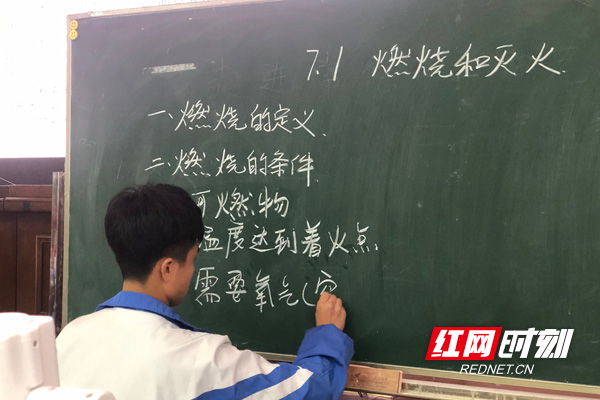 7.1 燃烧和灭火.
一、燃烧的定义.
二、燃烧的条件
可燃物
温度达到着火点.
需要氧气(空
红网时刻
REDNET.CN